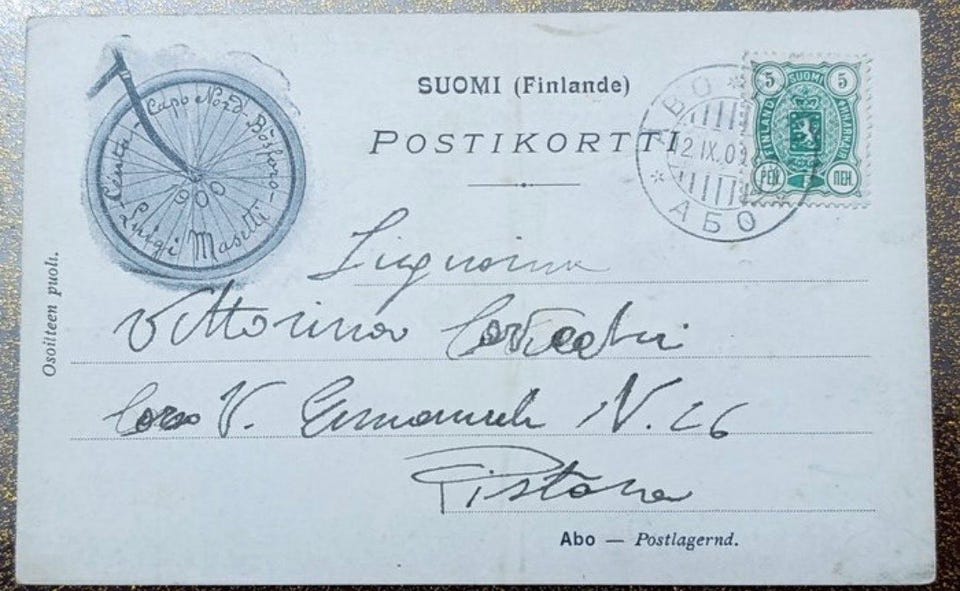 Ceuta - Capo Nord - Bosforo -
900
Luigi Masetti
SUOMI (Finlande)
POSTIKORTTI
ABO
12.IX.0
АБО
5 SUOMI 5
FINLAND
PEN. ПЕН.
Osoitteen puoli.
Signorina
Vittorina
Corso V. Emanuele N. 26
Pistoia
Abo — Postlagernd.